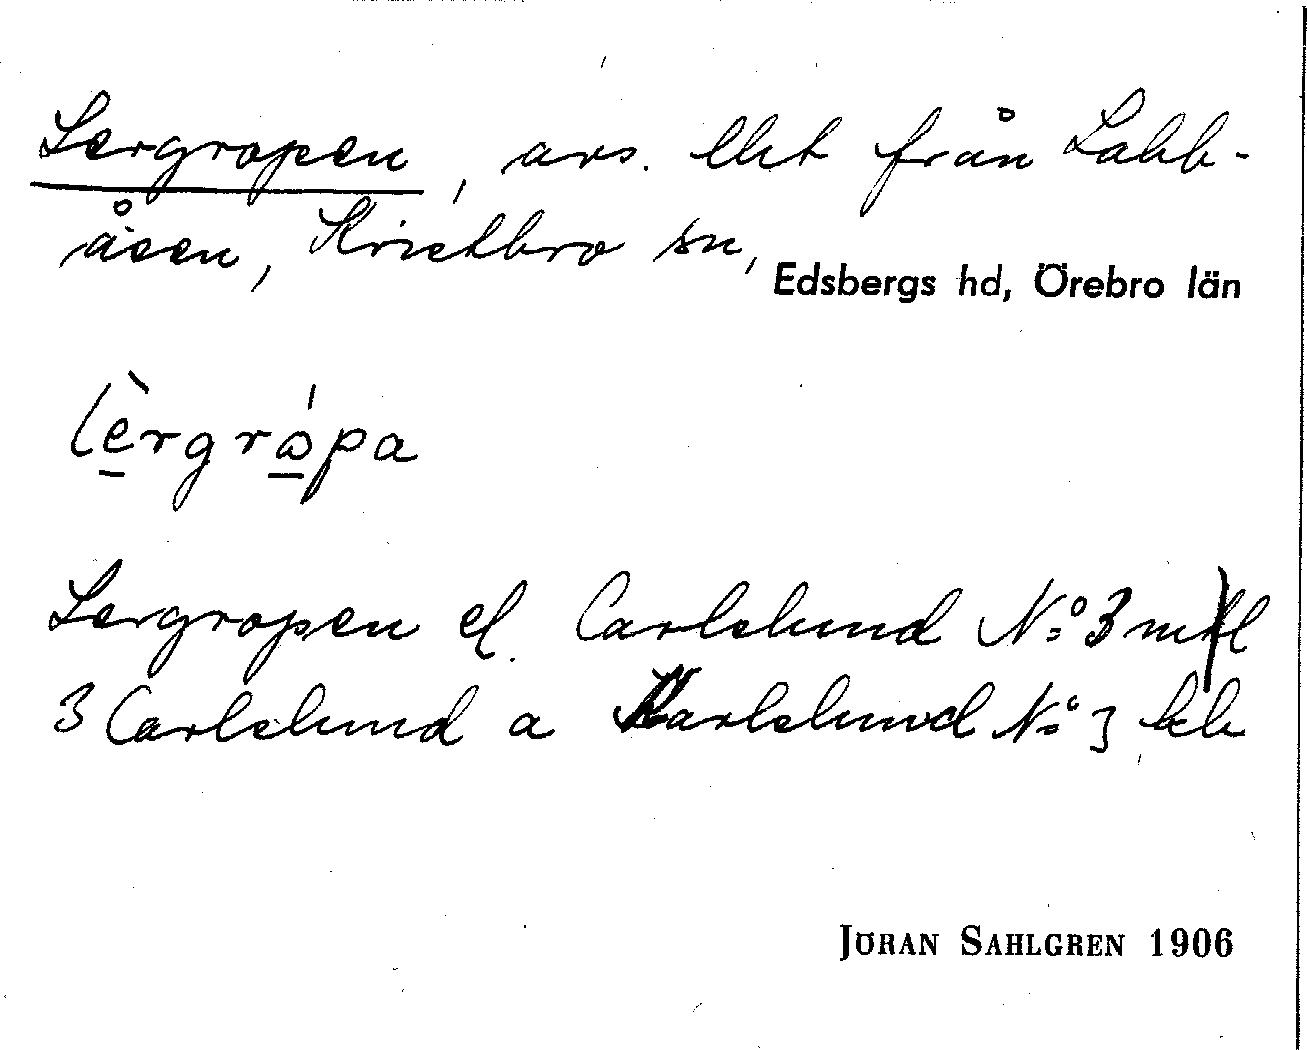 Lergropen, avs. llht från Labb-
åsen, Kvistbro sn,
Edsbergs hd, Örebro län
lèrgrápa
Lergropen el. Carlslund No 3 mtl
3 Carlslund a Karlslund No 3 kb
JÖRAN SAHLGREN 1906